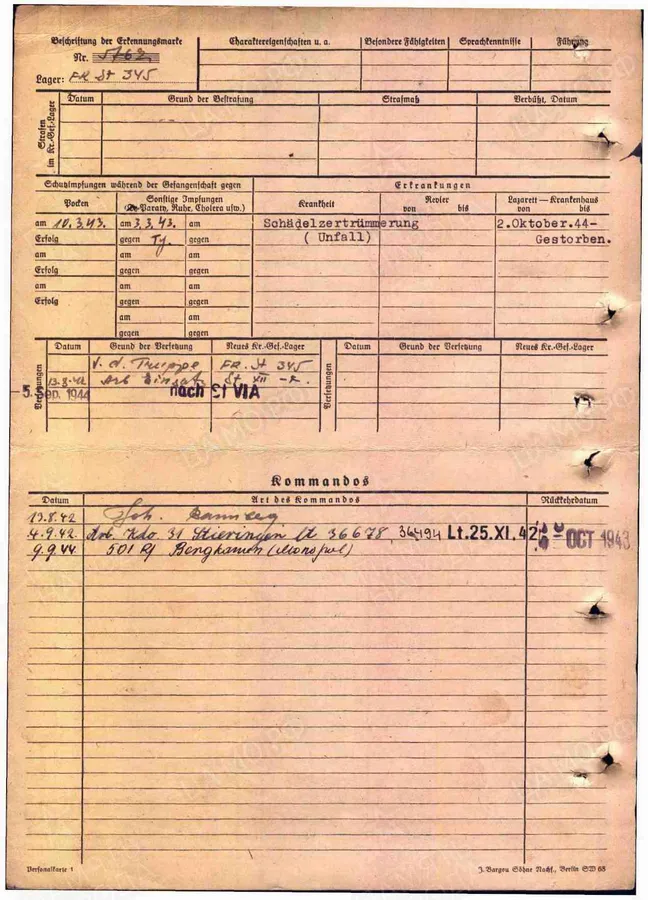 Beschriftung der Erkennungsmarke
Nr. 5762
Lager: FR St 345
Charaktereigenschaften u. a.
Besondere Fähigkeiten
Sprachkenntnisse
Führung
Strafen im Kr.-Gef.-Lager
Datum
Grund der Bestrafung
Strafmaß
Verbüßt, Datum
Schutzimpfungen während der Gefangenschaft gegen
Erkrankungen
Pocken
Sonstige Impfungen
Paratyp, Ruhr, Cholera usw.)
Krankheit
Revier
von bis
Lazarett — Krankenhaus
von bis
am 10.3.43. am 3.3.43. am
Schädelzertrümmerung
2.Oktober.44-
Erfolg gegen Ty. gegen
( Unfall)
Gestorben.
am am am
Erfolg gegen gegen
am am am
Erfolg gegen gegen
am am am
Erfolg gegen gegen
am am
gegen gegen
Versetzungen
Datum
Grund der Versetzung
Neues Kr.-Gef.-Lager
Versetzungen
Datum
Grund der Versetzung
Neues Kr.-Gef.-Lager
v. d. Truppe FR. St 345
13.8.42 Arb Einsatz St XII
-5. Sep. 1944 nach St VI A
Kommandos
Datum
Art des Kommandos
Rückkehrdatum
13.8.42
4.9.42 Arb. Kdo 31 Stieringen lt 36678, 36494 Lt.25.XI.42 OCT 1943
9.9.44 501 R/ Bergkamen (Monopol)
Personalkarte 1
J. Bargou Söhne Nachf., Berlin SW 68